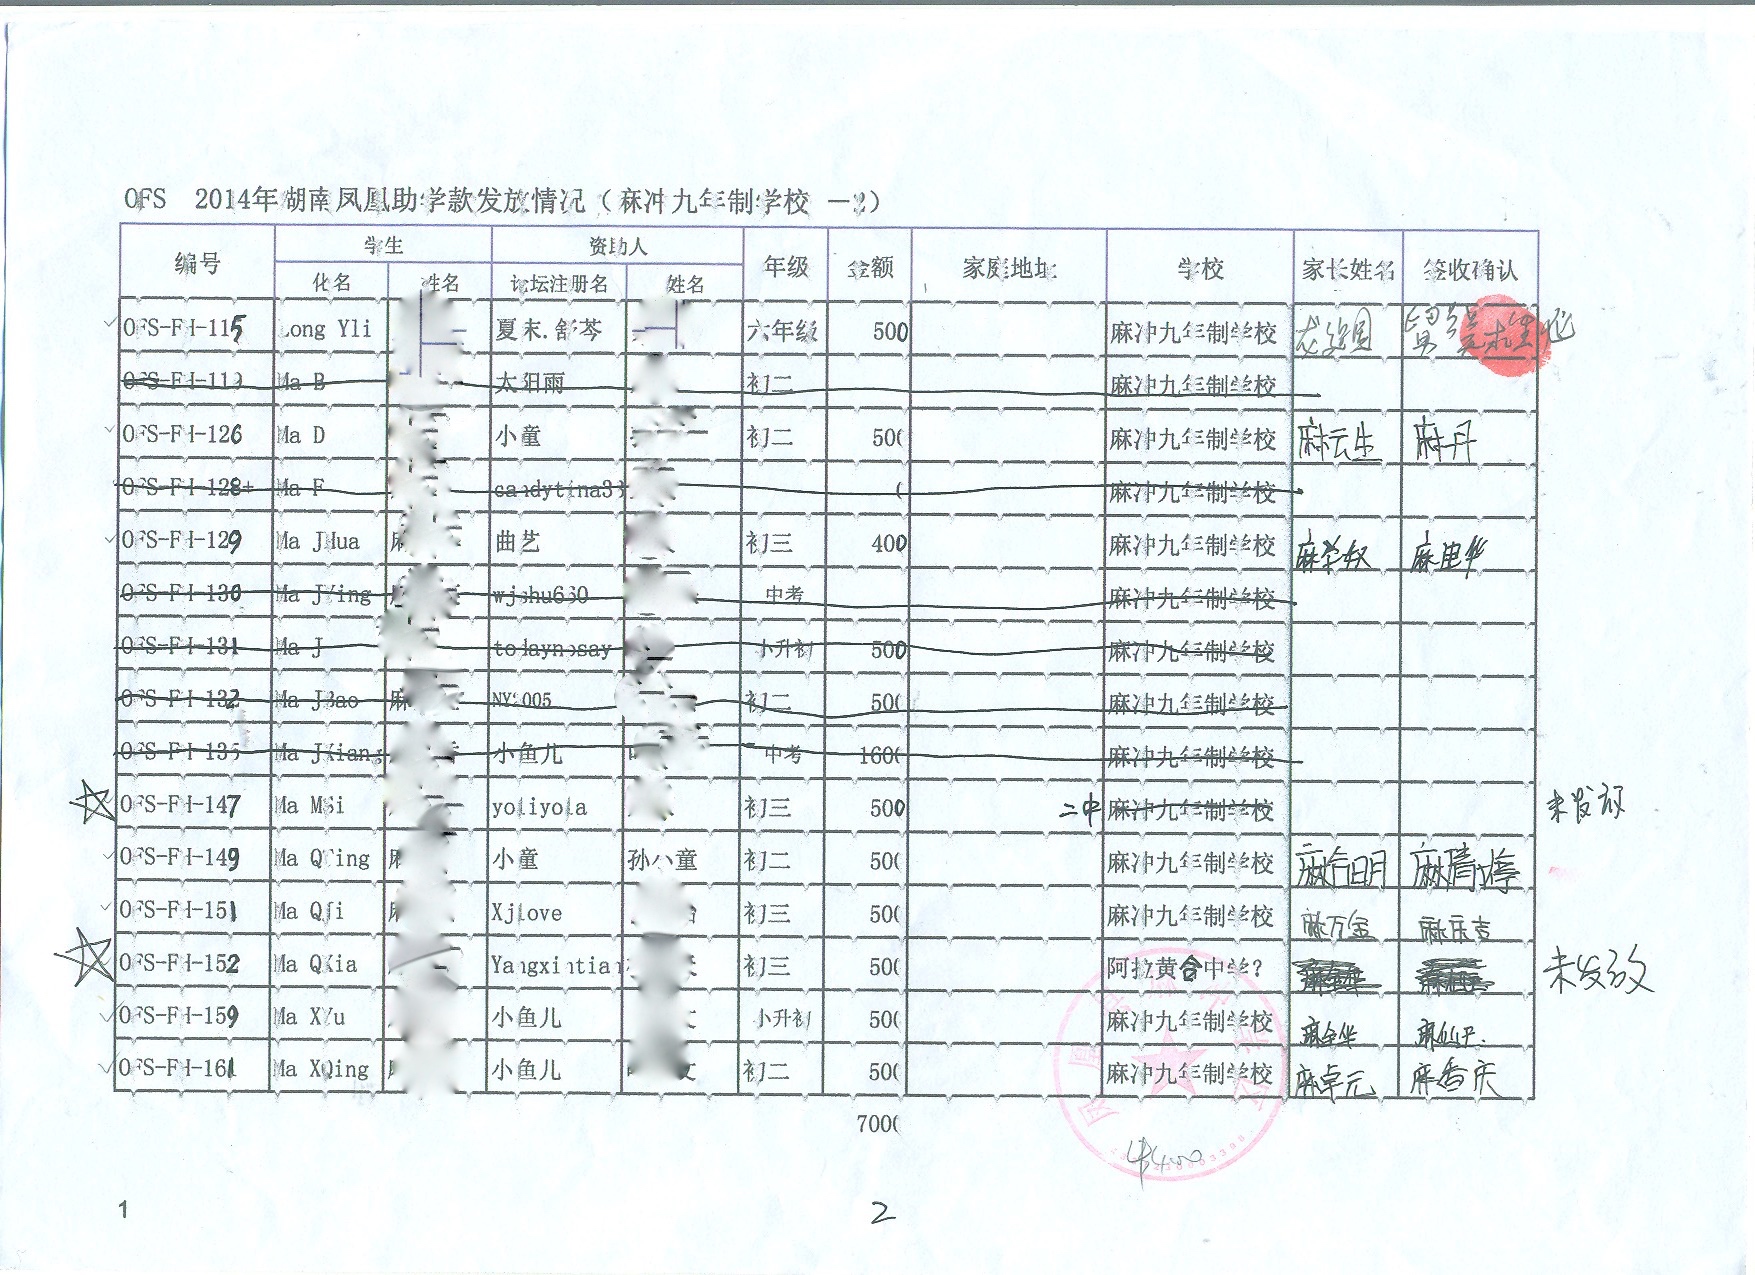 OFS 2014年湖南凤凰助学款发放情况（麻冲九年制学校 -2）
编号 学生 资助人 年级 金额 家庭地址 学校 家长姓名 签收确认
化名 姓名 论坛注册名 姓名
OFS-FH-115 Long Yli 夏末.舒芩 六年级 500 麻冲九年制学校
OFS-FH-119 Ma B 太阳雨 初二 麻冲九年制学校
OFS-FH-126 Ma D 小童 初二 500 麻冲九年制学校 麻云生 麻丹
OFS-FH-128+ Ma F candytina33 0 麻冲九年制学校
OFS-FH-129 Ma JHua 麻 曲艺 初三 400 麻冲九年制学校
OFS-FH-130 Ma JYing wjshu630 中考 麻冲九年制学校
OFS-FH-131 Ma J todaynosay 小升初 500 麻冲九年制学校
OFS-FH-132 Ma JBao 麻 NYS005 初二 500 麻冲九年制学校
OFS-FH-135 Ma JXiang 小鱼儿 中考 1600 麻冲九年制学校
OFS-FH-147 Ma MSi yoliyola 初三 500 二中 麻冲九年制学校 未发放
OFS-FH-149 Ma QTing 麻 小童 孙小童 初二 500 麻冲九年制学校 麻晴婷
OFS-FH-151 Ma QJi 麻 Xjlove 初三 500 麻冲九年制学校 麻万金
OFS-FH-152 Ma QXia Yangxintian 初三 500 阿拉黄合中学? 未发放
OFS-FH-159 Ma XYu 小鱼儿 小升初 500 麻冲九年制学校 麻金华
OFS-FH-161 Ma XQing 小鱼儿 文 初二 500 麻冲九年制学校 麻卓元 麻香庆
7000
1 2